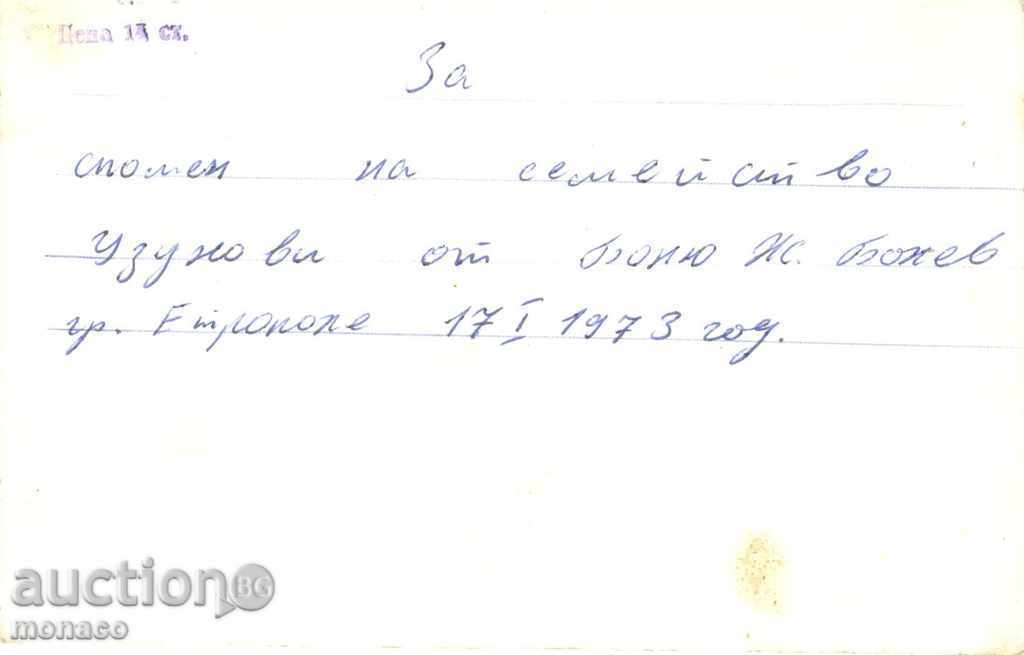 Цена 14 ст.
За
спомен на семейство
Узунови от Боню Ж. Божев
гр. Етрополе 17 I 1973 год.
auction BG
monaco